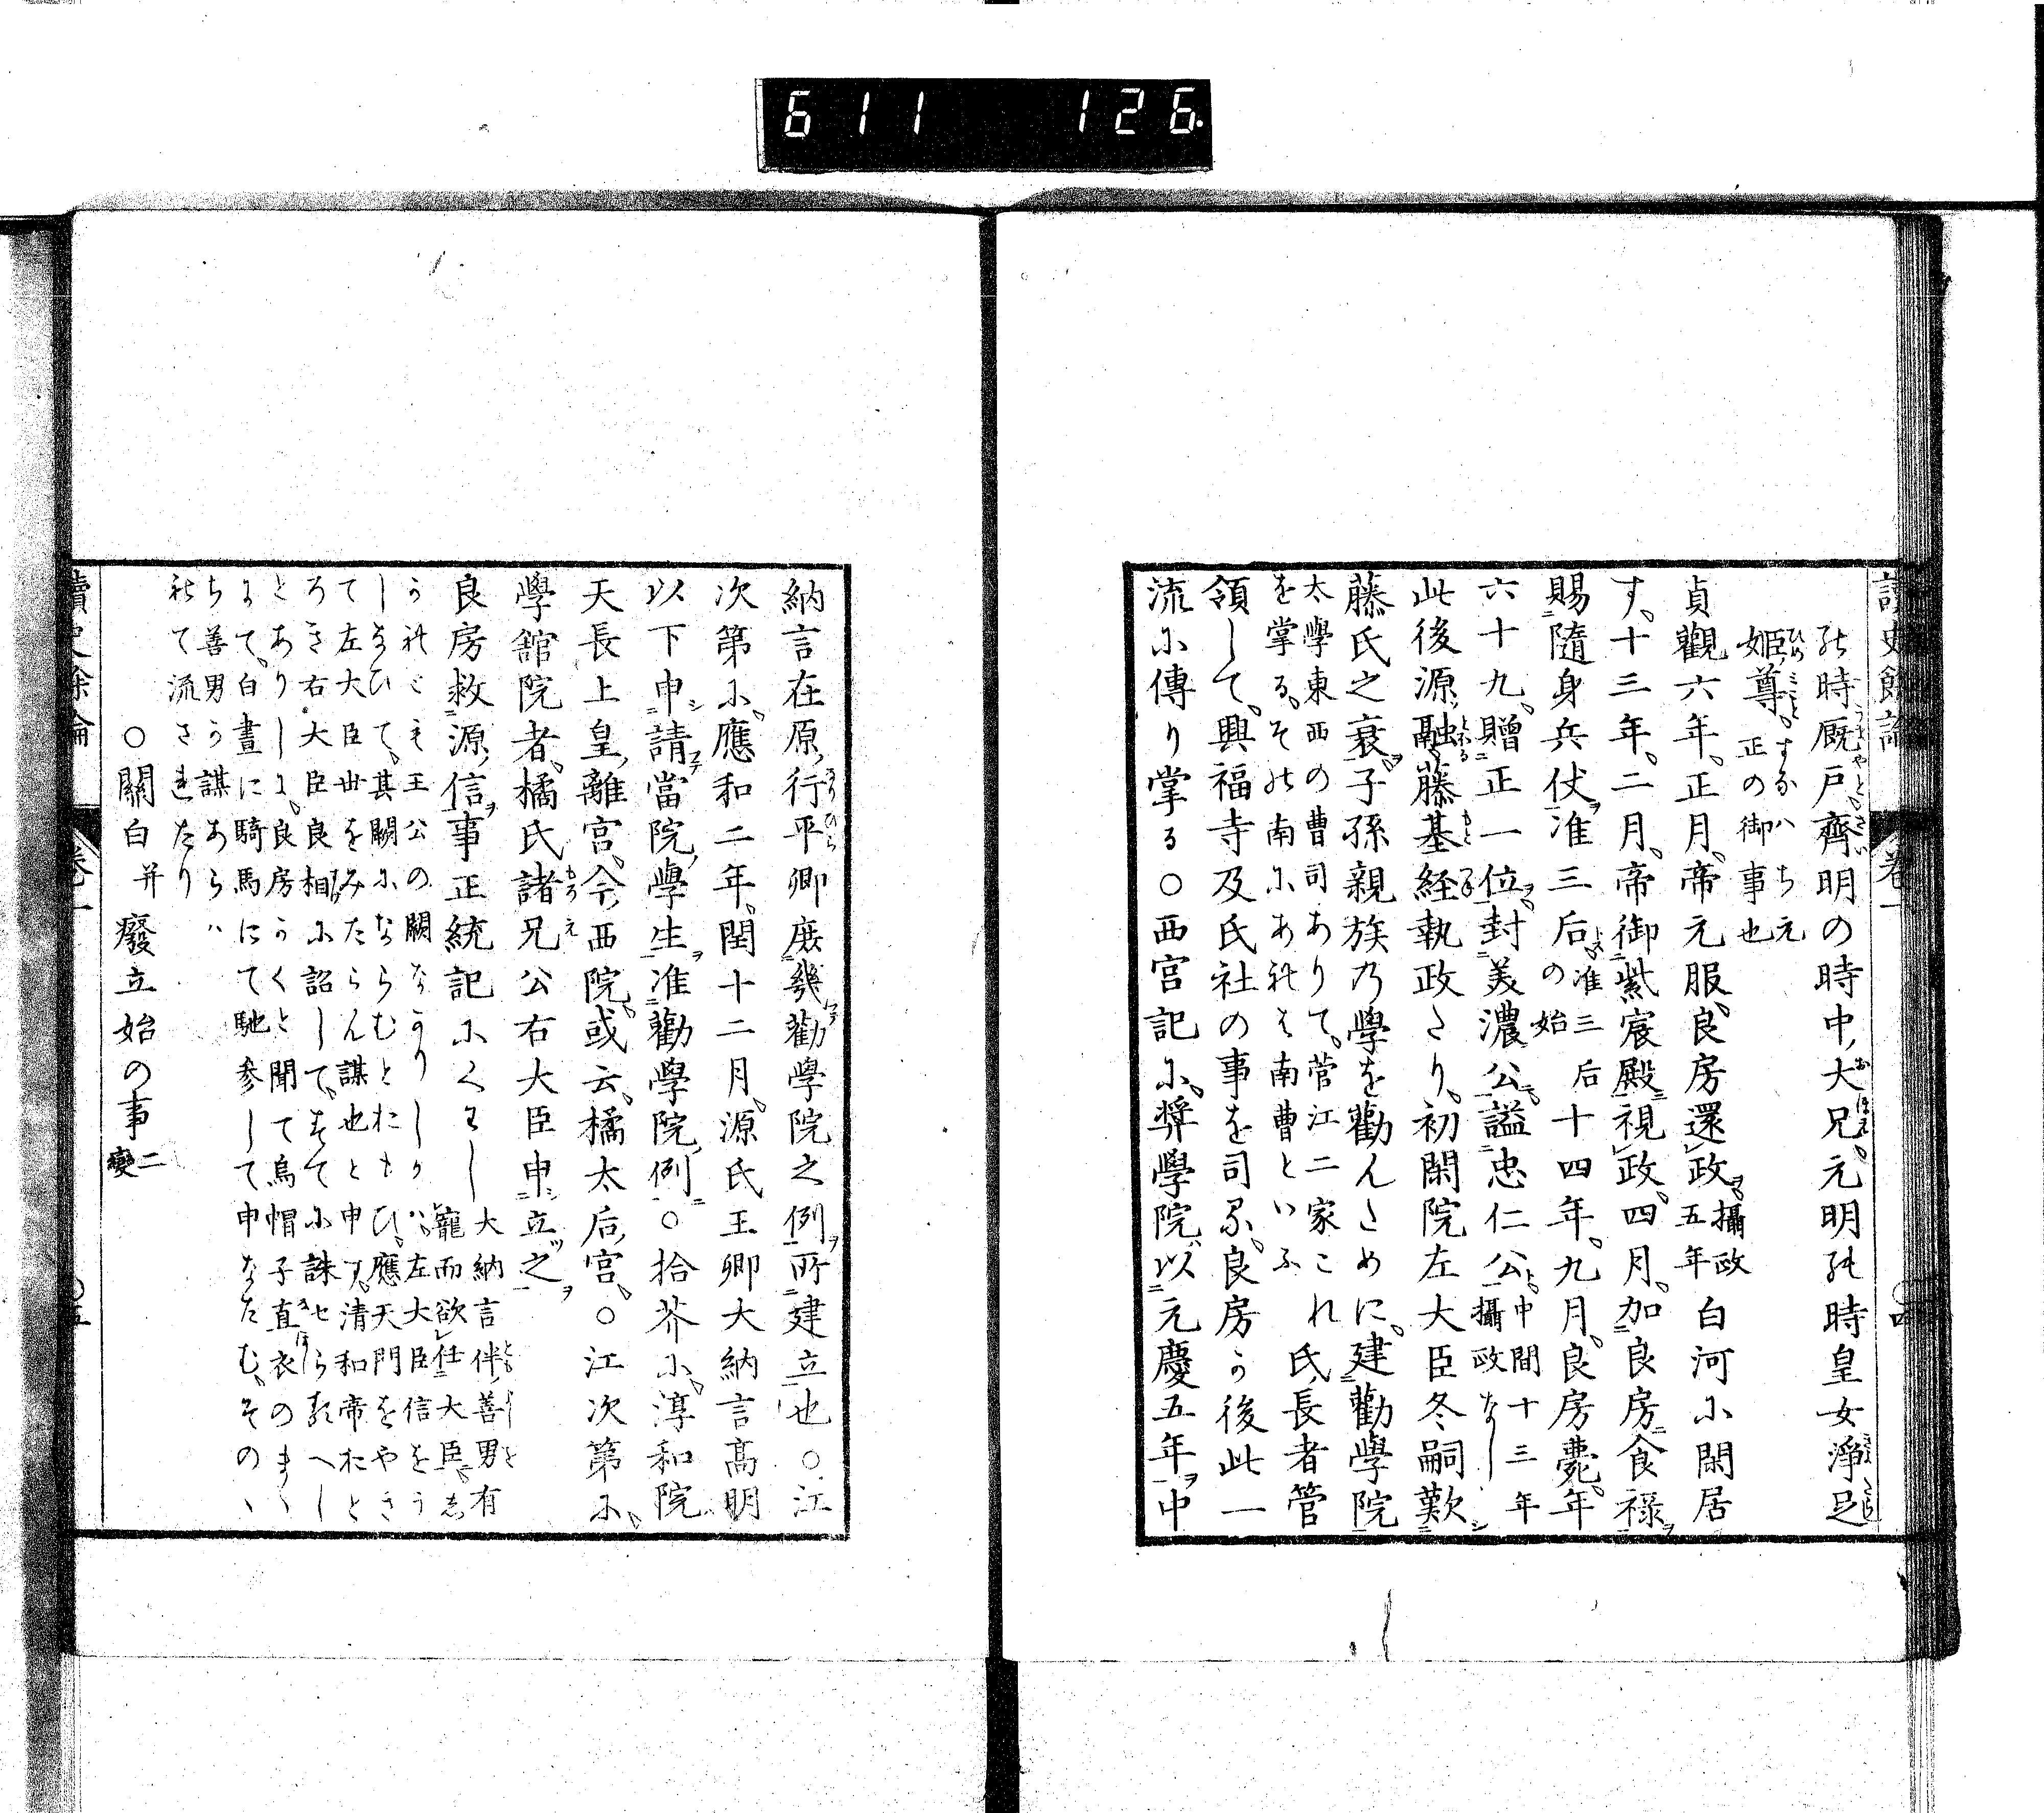 611 126
讀史餘論 卷一 四
の時厩戸、齊明の時中大兄、元明の時皇女淨足
姫尊、すなハち元正の御事也
貞觀六年、正月、帝元服、良房還政、攝政五年白河に閑居
す、十三年、二月、帝御紫宸殿視政、四月、加良房食祿
賜隨身兵仗准三后、准三后の始十四年、九月、良房薨、年
六十九、贈正一位、封美濃公、謚忠仁公、中間十三年攝政なし
此後源融、藤基経執政たり、初閑院左大臣冬嗣歎
藤氏之衰、子孫親族乃學を勸んために、建勸學院
太學東西の曹司ありて、菅江二家これを掌る、その南にあれは南曹といふ氏、長者管
領して、興福寺及氏社の事を司る、良房う後此一
流に傳り掌る○西宮記に、奨學院、以元慶五年中
納言在原行平卿庶幾勸學院之例所建立也○江
次第に、應和二年、閏十二月、源氏王卿大納言高明
以下申請當院學生准勸學院例○拾芥に、淳和院
天長上皇離宮、今西院、或云、橘太后宮、○江次第に、
學舘院者、橘氏諸兄公右大臣申立之
良房救源信事正統記にくわし大納言伴善男有
寵而欲任大臣、
うれとも王公の闕なかりしかハ、左大臣信をう
しなひて、其闕にならむとおもひ、應天門をやき
て左大臣世をみたらん謀也と申ス、清和帝おと
ろき右大臣良相に詔して、すてに誅せらるへし
とありしに、良房かくと聞て烏帽子直衣のまゝ
にて、白晝に騎馬にて馳参して申なたむ、そのゝ
ち善男う謀あらハ
れて流されたり
○關白并癈立始の事 二變
讀史餘論 卷一 五